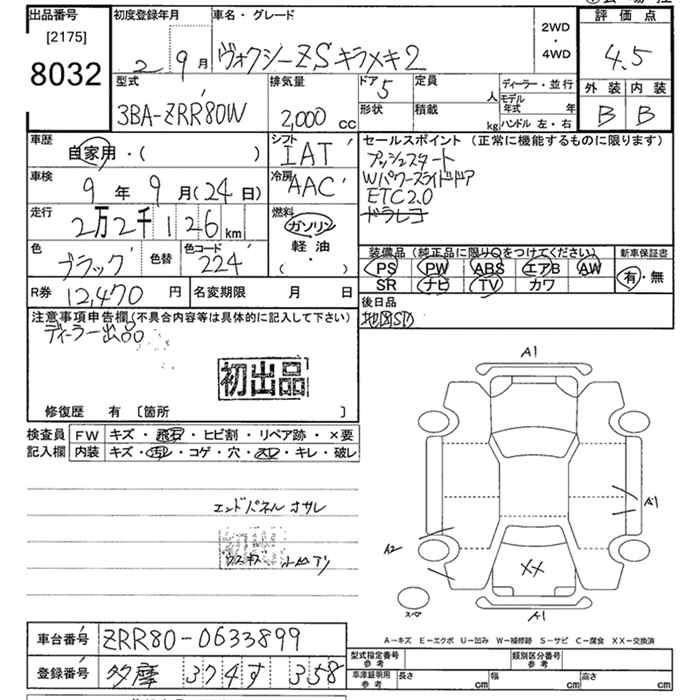 出品番号
[2175]
8032
初度登録年月
2 9月
車名・グレード
ヴォクシーZS キラメキ2
2WD
・
4WD
評価点
4.5
外装 内装
B B
型式
3BA-ZRR80W
排気量
2,000 cc
ドア 5
定員 人
形状
積載 kg
ディーラー・並行
モデル年式 年
ハンドル 左・右
車歴
自家用・( )
シフト
IAT
セールスポイント(正常に機能するものに限ります)
プッシュスタート
Wパワースライドドア
ETC2.0
ドラレコ
車検
9年 9月(24日)
冷房
AAC
走行
2万2千126km
燃料
ガソリン
軽油
・
( )
色
ブラック
色替
色コード
224
装備品(純正品に限り○をつけてください)
PS PW ABS エアB AW
SR ナビ TV カワ
新車保証書
有・無
R券 12,470円
名変期限 月 日
後日品
地図SD
注意事項申告欄(不具合内容等は具体的に記入して下さい)
ディーラー出品
初出品
修復歴 有 [箇所 ]
検査員
記入欄
FW キズ・飛石・ヒビ割・リペア跡・×要
内装 キズ・汚レ・コゲ・穴・スレ・キレ・破レ
エンドパネル オサレ
ウスキズ 小凹アリ
A1
A1
A2
XX
スペア
A1
A－キズ E－エクボ U－凹み W－補修跡 S－サビ C－腐食 XX－交換済
車台番号 ZRR80-0633899
登録番号 多摩 374 す 358
型式指定番号
参考
類別区分番号
参考
車庫証明用
参考
長さ cm
幅 cm
高さ cm